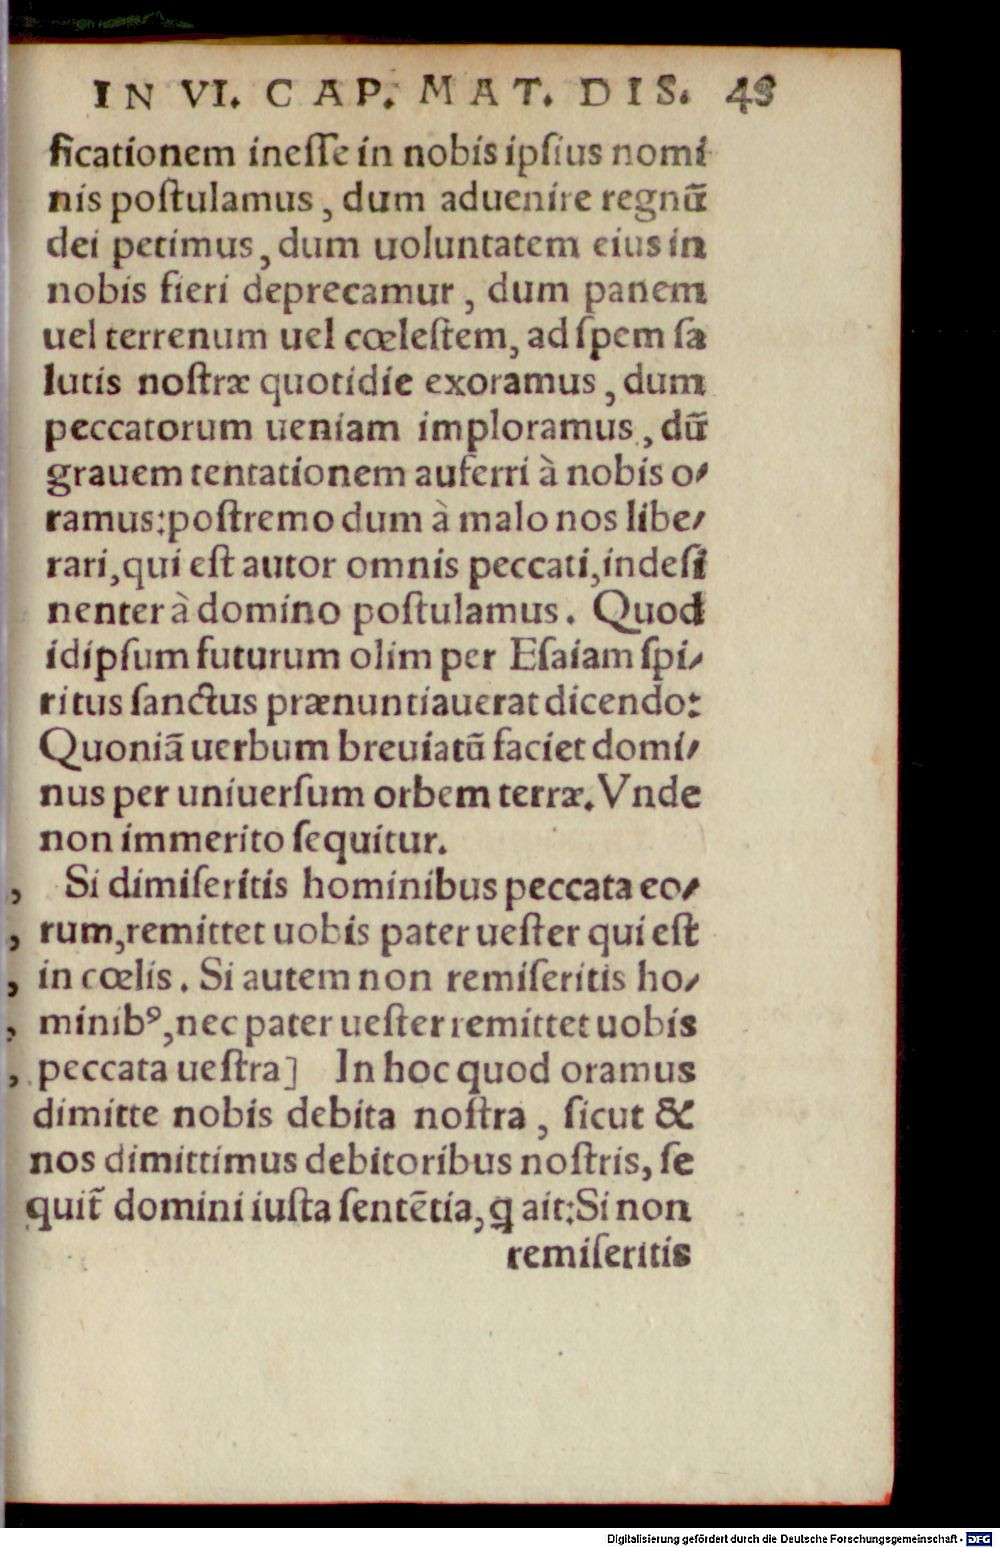 IN VI. CAP. MAT. DIS. 43
ficationem ineſſe in nobis ipſius nomi
nis poſtulamus, dum aduenire regnũ
dei petimus, dum uoluntatem eius in
nobis fieri deprecamur, dum panem
uel terrenum uel cœleſtem, ad ſpem ſa
lutis noſtræ quotidie exoramus, dum
peccatorum ueniam imploramus, dũ
grauem tentationem auferri à nobis o-
ramus: poſtremo dum à malo nos libe-
rari, qui eſt autor omnis peccati, indeſi
nenter à domino poſtulamus. Quod
idipſum futurum olim per Eſaiam ſpi-
ritus ſanctus prænuntiauerat dicendo:
Quoniã uerbum breuiatũ faciet domi-
nus per uniuerſum orbem terræ. Vnde
non immerito ſequitur.
, Si dimiſeritis hominibus peccata eo-
, rum, remittet uobis pater ueſter qui eſt
, in cœlis. Si autem non remiſeritis ho-
, minibꝰ, nec pater ueſter remittet uobis
, peccata ueſtra] In hoc quod oramus
dimitte nobis debita noſtra, ſicut &
nos dimittimus debitoribus noſtris, ſe
quit̃ domini iuſta ſentẽtia, q ait: Si non
remiſeritis
Digitalisierung gefördert durch die Deutsche Forschungsgemeinschaft - DFG